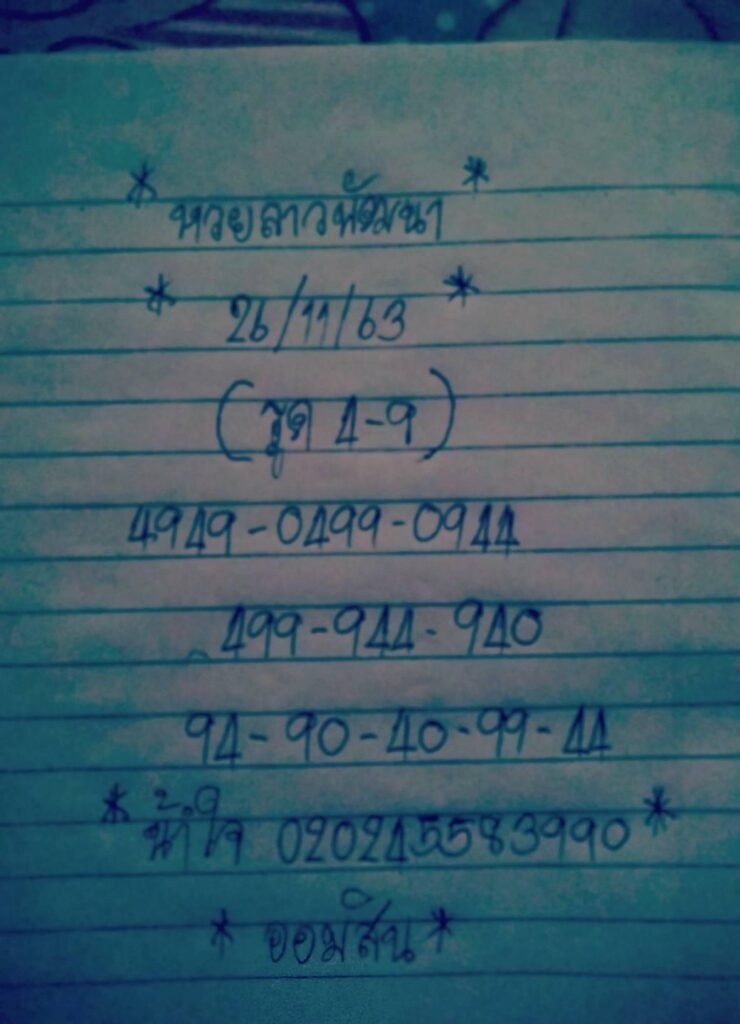 * หวยลาวพัฒนา *
* 26/11/63 *
(รูด 4-9)
4949-0499-0944
499-944-940
94-90-40-99-44
* น้ำใจ 020245583990 *
* ออมสิน *